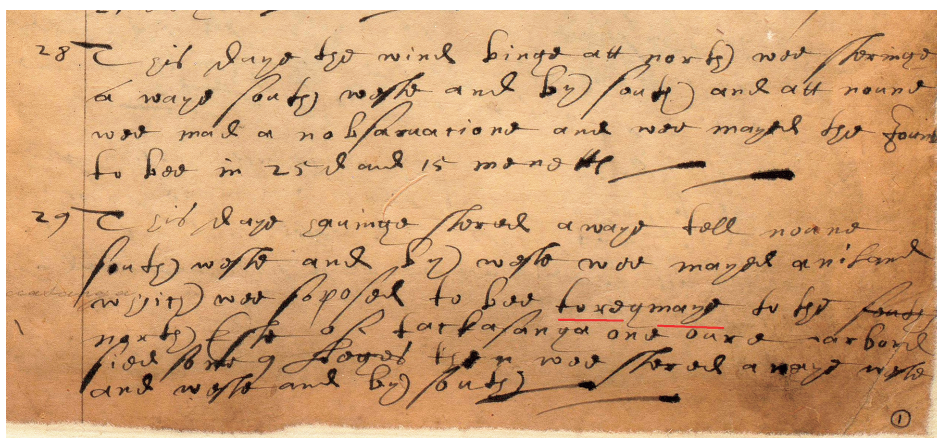 28 This daye the wind binge att north wee steringe
a waye south weste and by south and att noune
wee mad a nobsaruatione and wee mayed the
to bee in 25 d and 15 menetts
29 This daye hauinge stered a waye tell noune
south weste and by weste wee mayed an iland
which wee soposed to bee toregmaye to the south
north este of tackasanga one oure larbord
sied some 9 leges then wee stered a waye weste
and weste and by south
1